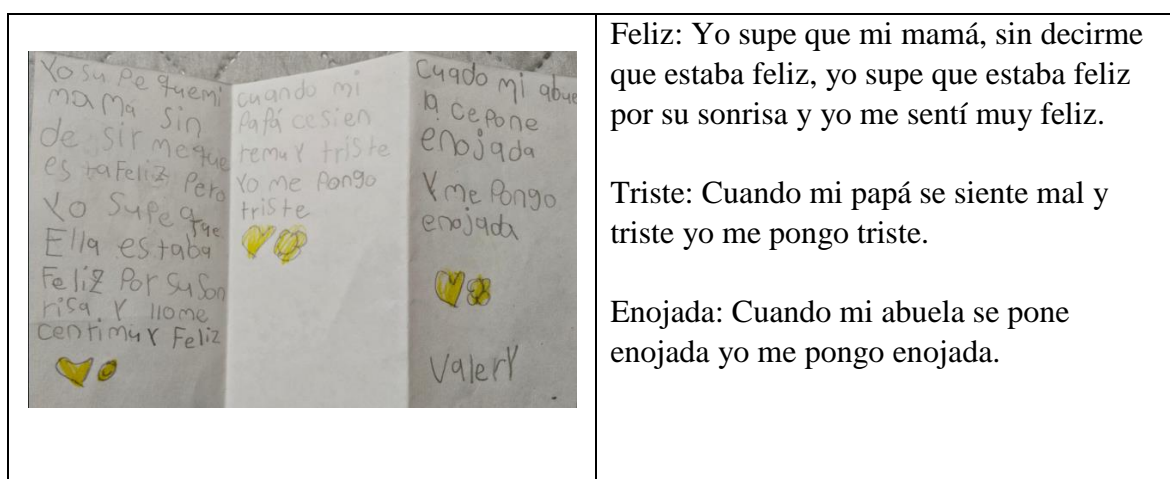 Yo su pe quemi
ma ma sin
de sir meque
es taFeliz Pero
Yo Supe que
Ella estaba
Feliz Por su son
risa. Y llome
centimuy Feliz
cuando mi
Papá cesien
temuy triste
Yo me Pongo
triste
Cuado mi abue
la cepone
enojada
Y me Pongo
enojada
Valery
Feliz: Yo supe que mi mamá, sin decirme
que estaba feliz, yo supe que estaba feliz
por su sonrisa y yo me sentí muy feliz.
Triste: Cuando mi papá se siente mal y
triste yo me pongo triste.
Enojada: Cuando mi abuela se pone
enojada yo me pongo enojada.